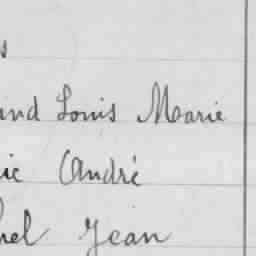 s
and Louis Marie
ic André
hel Jean